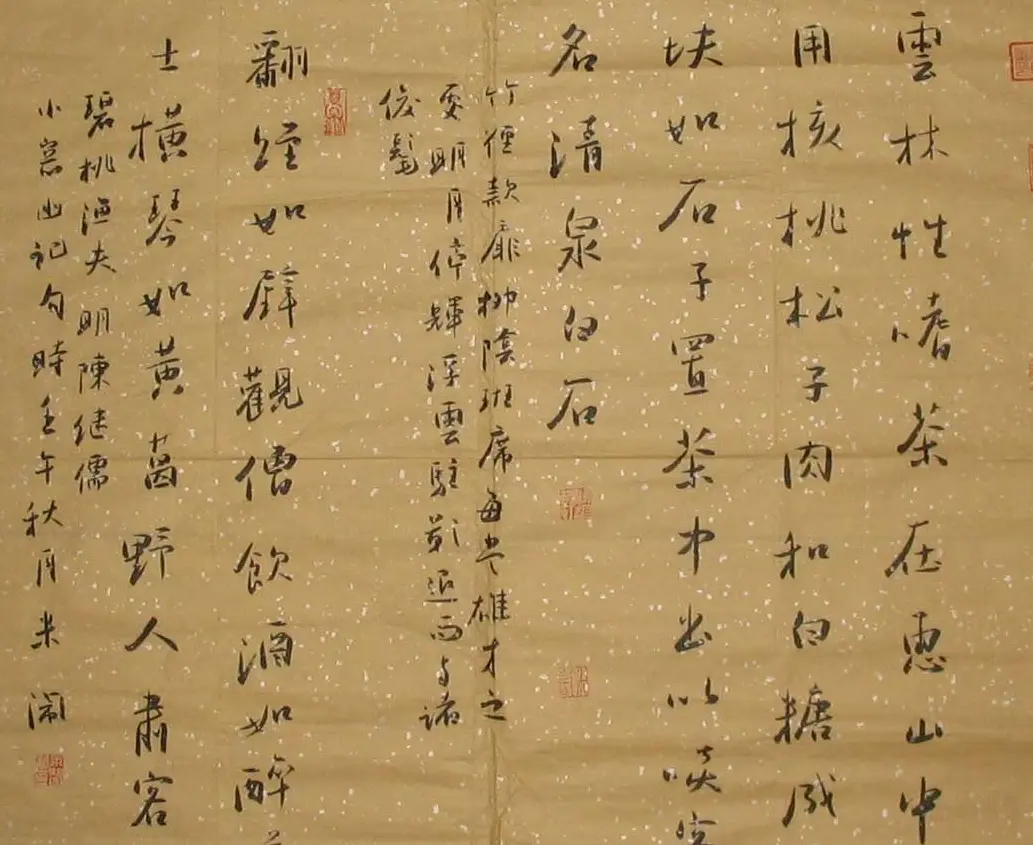 雲林性嗜茶在惠山中
用核桃松子肉和白糖成
块如石子置茶中出以啖客
名清泉白石
竹徑款扉柳陰班席每当雄才之
處明月停輝浮雲駐影退而与諸
俊髦
翻經如壁觀僧飲酒如醉
士橫琴如黃葛野人肅客
碧桃漁夫明陳继儒
小窓幽記句時壬午秋月米闹